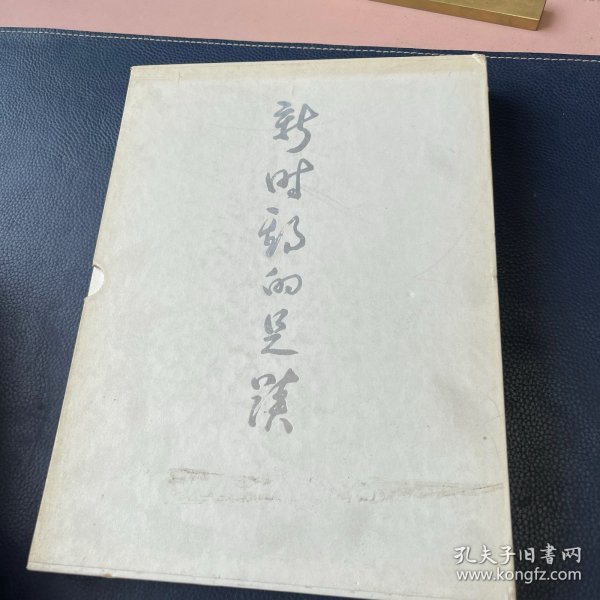 新时期的足蹟
孔夫子旧書网
www.kongfz.com